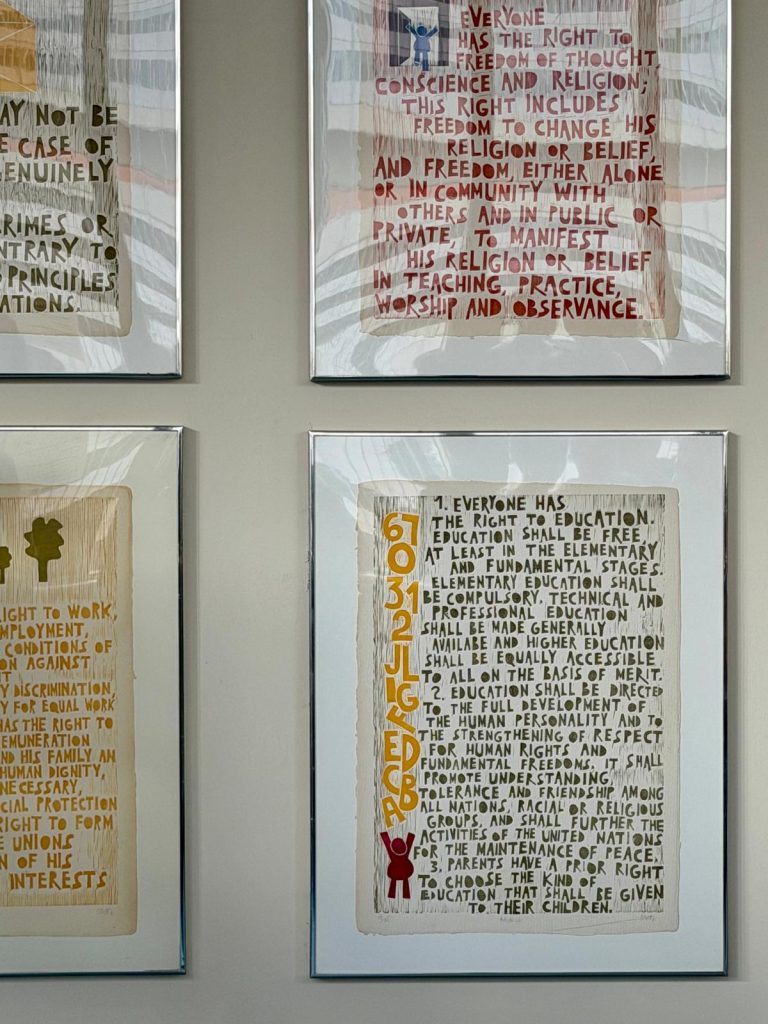 AY NOT BE
E CASE OF
ENUINELY
RIMES OR
NTRARY TO
PRINCIPLES
ATIONS.
EVERYONE
HAS THE RIGHT TO
FREEDOM OF THOUGHT,
CONSCIENCE AND RELIGION;
THIS RIGHT INCLUDES
FREEDOM TO CHANGE HIS
RELIGION OR BELIEF,
AND FREEDOM, EITHER ALONE
OR IN COMMUNITY WITH
OTHERS AND IN PUBLIC OR
PRIVATE, TO MANIFEST
HIS RELIGION OR BELIEF
IN TEACHING, PRACTICE,
WORSHIP AND OBSERVANCE.
RIGHT TO WORK,
MPLOYMENT,
CONDITIONS OF
ON AGAINST
NT
Y DISCRIMINATION,
Y FOR EQUAL WORK
HAS THE RIGHT TO
EMUNERATION
ND HIS FAMILY AN
HUMAN DIGNITY,
NECESSARY,
CIAL PROTECTION
RIGHT TO FORM
E UNIONS
N OF HIS
INTERESTS
1. EVERYONE HAS
THE RIGHT TO EDUCATION.
EDUCATION SHALL BE FREE,
AT LEAST IN THE ELEMENTARY
AND FUNDAMENTAL STAGES.
ELEMENTARY EDUCATION SHALL
BE COMPULSORY. TECHNICAL AND
PROFESSIONAL EDUCATION
SHALL BE MADE GENERALLY
AVAILABE AND HIGHER EDUCATION
SHALL BE EQUALLY ACCESSIBLE
TO ALL ON THE BASIS OF MERIT.
2. EDUCATION SHALL BE DIRECTED
TO THE FULL DEVELOPMENT OF
THE HUMAN PERSONALITY AND TO
THE STRENGTHENING OF RESPECT
FOR HUMAN RIGHTS AND
FUNDAMENTAL FREEDOMS. IT SHALL
PROMOTE UNDERSTANDING,
TOLERANCE AND FRIENDSHIP AMONG
ALL NATIONS, RACIAL OR RELIGIOUS
GROUPS, AND SHALL FURTHER THE
ACTIVITIES OF THE UNITED NATIONS
FOR THE MAINTENANCE OF PEACE.
3. PARENTS HAVE A PRIOR RIGHT
TO CHOOSE THE KIND OF
EDUCATION THAT SHALL BE GIVEN
TO THEIR CHILDREN.